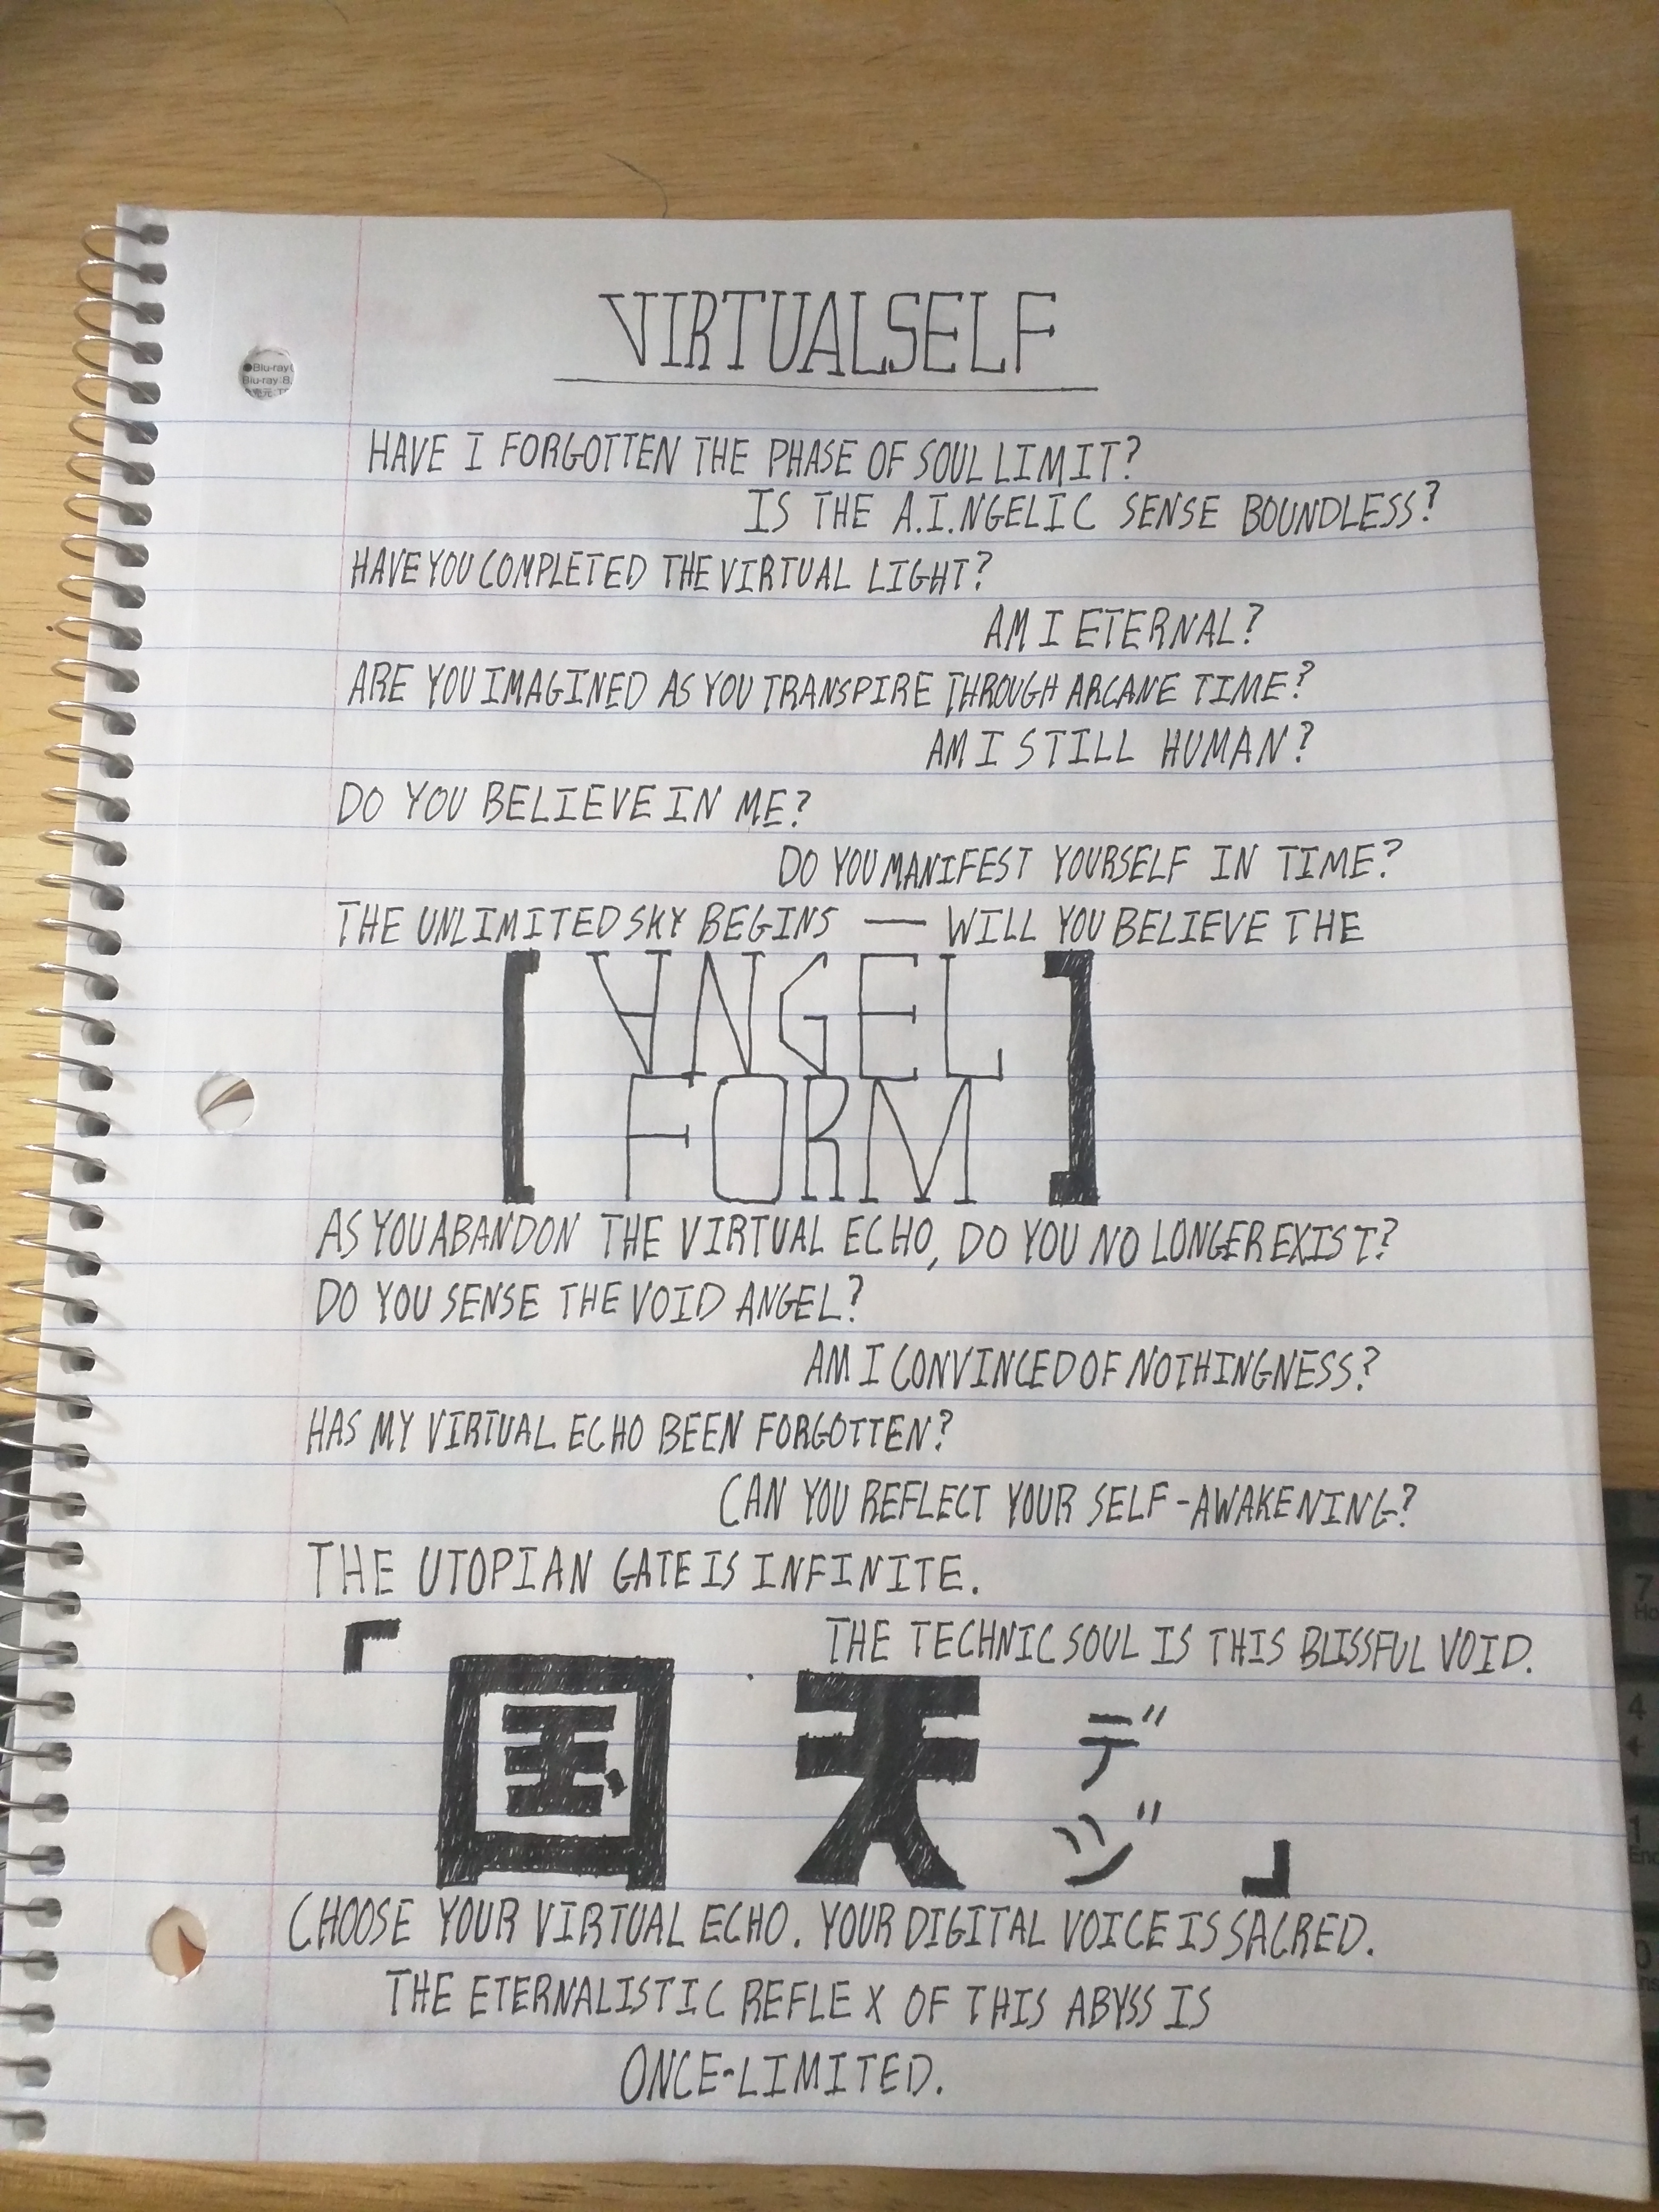 VIRTUALSELF
●Blu-ray
Blu-ray B
HAVE I FORGOTTEN THE PHASE OF SOUL LIMIT?
IS THE A.I.NGELIC SENSE BOUNDLESS?
HAVE YOU COMPLETED THE VIRTUAL LIGHT?
AM I ETERNAL?
ARE YOU IMAGINED AS YOU TRANSPIRE THROUGH ARCANE TIME?
AM I STILL HUMAN?
DO YOU BELIEVE IN ME?
DO YOU MANIFEST YOURSELF IN TIME?
THE UNLIMITED SKY BEGINS — WILL YOU BELIEVE THE
[ ANGEL
FORM ]
AS YOU ABANDON THE VIRTUAL ECHO, DO YOU NO LONGER EXIST?
DO YOU SENSE THE VOID ANGEL?
AM I CONVINCED OF NOTHINGNESS?
HAS MY VIRTUAL ECHO BEEN FORGOTTEN?
CAN YOU REFLECT YOUR SELF-AWAKENING?
THE UTOPIAN GATE IS INFINITE.
THE TECHNIC SOUL IS THIS BLISSFUL VOID.
「国天デジ」
CHOOSE YOUR VIRTUAL ECHO. YOUR DIGITAL VOICE IS SACRED.
THE ETERNALISTIC REFLEX OF THIS ABYSS IS
ONCE-LIMITED.
7
4
1
0